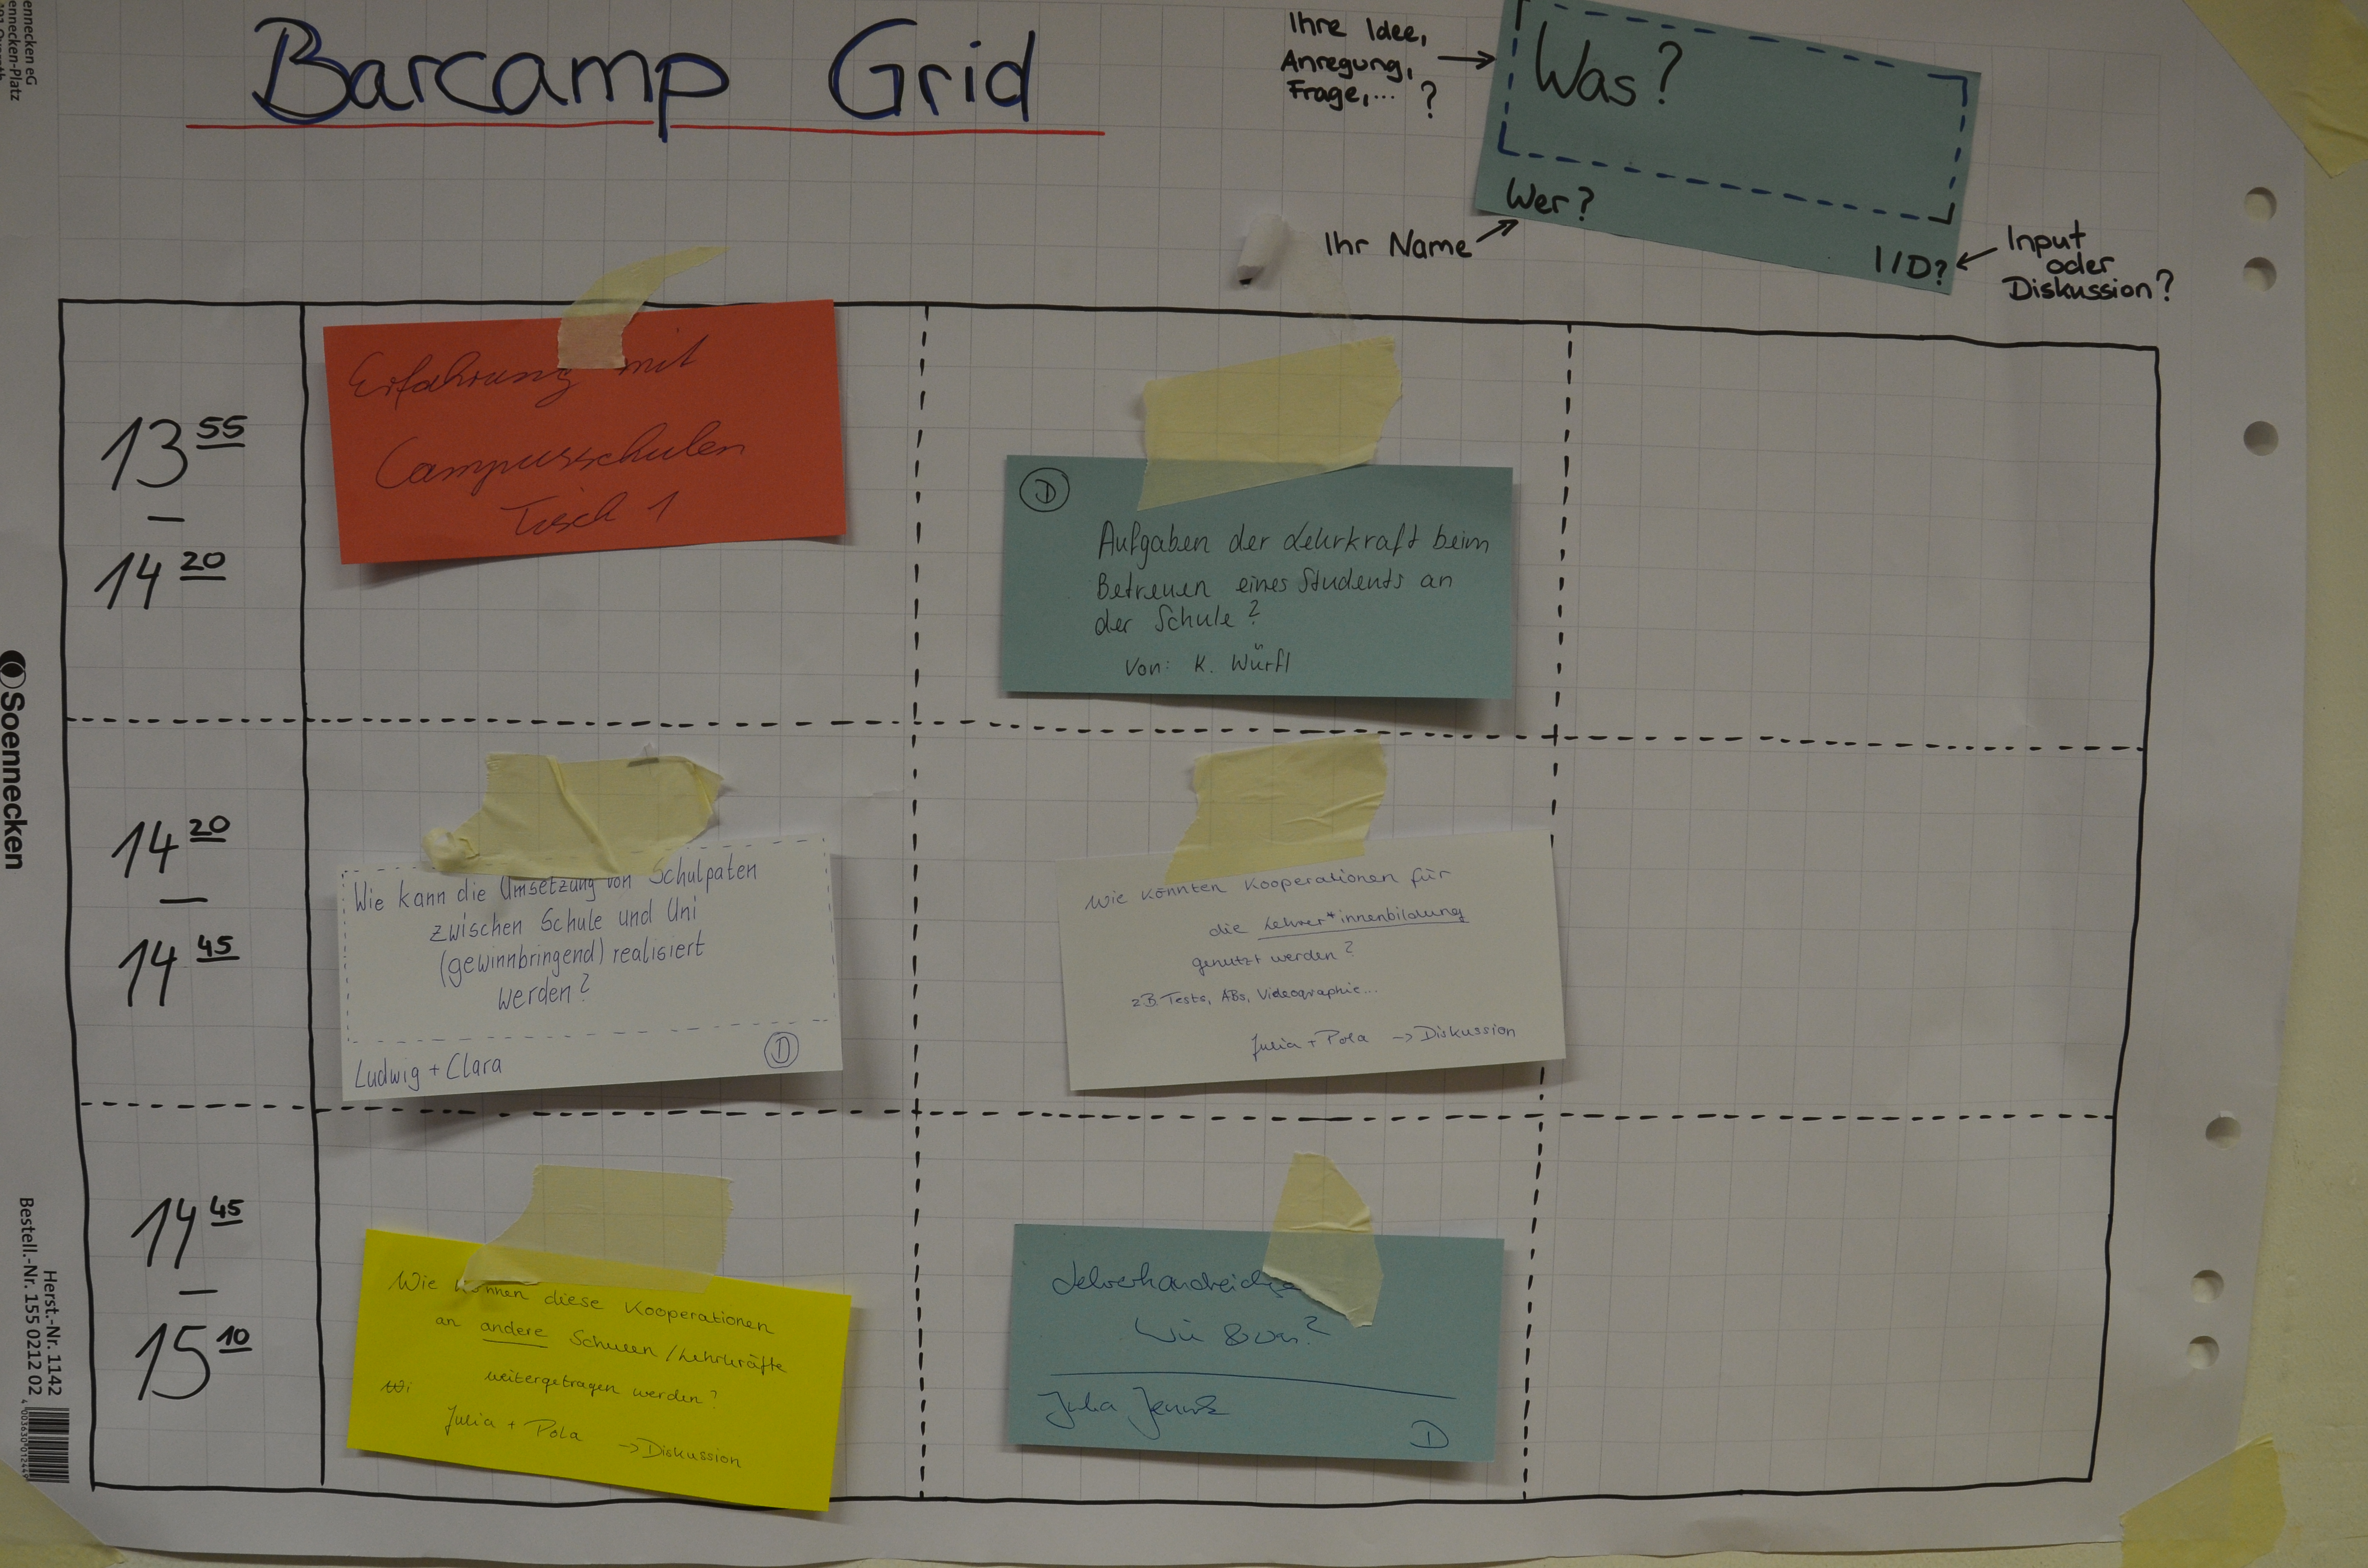 Barcamp Grid
Ihre Idee,
Anregung,
Frage,... ?
Was?
Wer?
Ihr Name
I/D?
Input
oder
Diskussion?
13 55
–
14 20
Erfahrung mit
Campusschulen
Tisch 1
D
Aufgaben der Lehrkraft beim
Betreuen eines Students an
der Schule?
von: K. Würfl
14 20
–
14 45
Wie kann die Umsetzung von Schulpaten
zwischen Schule und Uni
(gewinnbringend) realisiert
werden?
Ludwig + Clara
D
Wie könnten Kooperationen für
die Lehrer*innenbildung
genutzt werden?
zB. Tests, ABs, Videographie...
Julia + Pola -> Diskussion
14 45
–
15 10
Wie können diese Kooperationen
an andere Schulen / Lehrkräfte
weitergetragen werden?
Wi
Julia + Pola -> Diskussion
Wie
Julia
D
ennecken eG
ennecken-Platz
Soennecken
Herst.-Nr. 1142
Bestell.-Nr. 155 0212 02
4 003630 012449